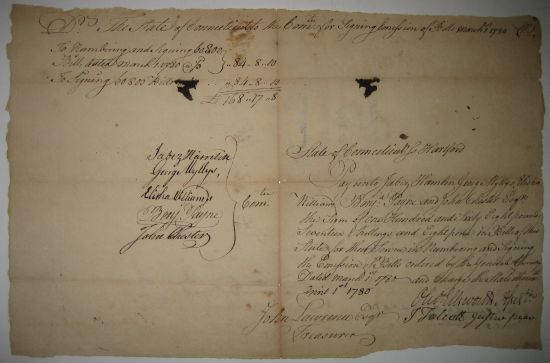 Dr. The State of Connecticut to the Comtee for Signing Emission of Bills March 1st 1780 Cr.
To Numbering and signing 60800
Bills dated March 1st 1780 } 84 - 8 - 10
To Signing 60800 84 - 8 - 10
£ 168 - 17 - 8
Jabez Hamlin
George Wyllys
Elisha Williams
Benj Payne
John Chester
} Comtee
State of Connecticut Ss Hartford
Pay unto Jabez Hamlin George Wyllys Elisha
Williams Benjn Payne and John Chester Esqrs
the Sum of one Hundred and Sixty Eight pounds
Seventeen Shillings and Eight pence in Bills of this
State for their Service in Numbering and Signing
the Emission of Bills ordered by the General Assembly
Dated March 1st 1780 and Charge the State
April 1st 1780
John Lawrence Esqr
Treasurer
Olivr Ellsworth
S Talcott Justice peace